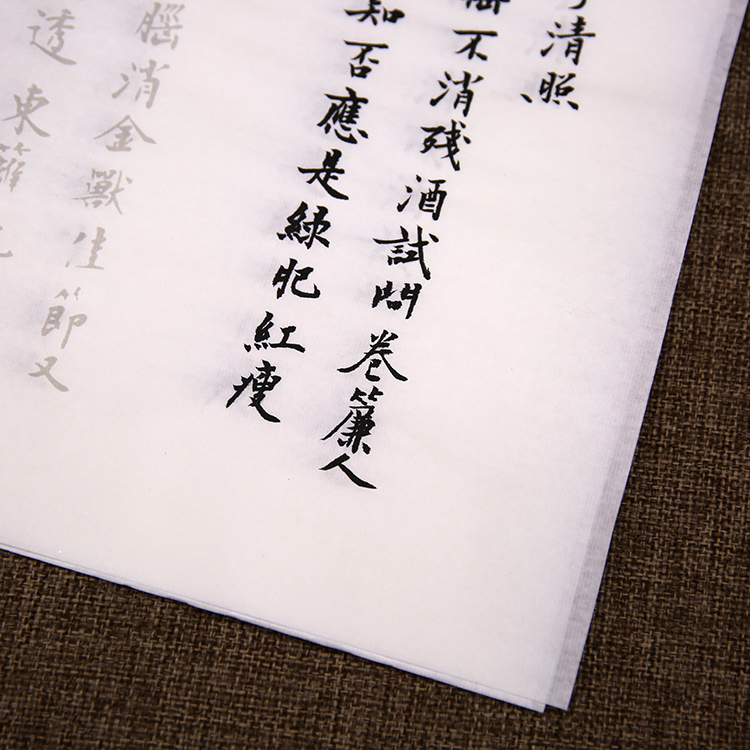 清照
不消残酒試問卷簾人
知否應是綠肥紅瘦
腦消金獸佳節又
透東籬